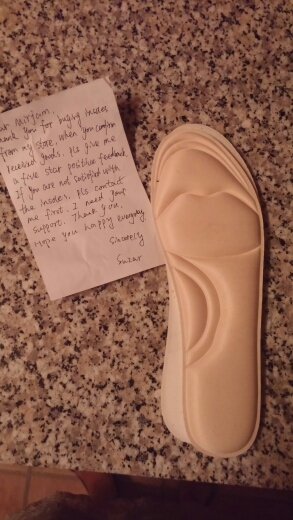 ar Mirjam,
hank you for buying insoles
from my store, when you confirm
received goods. Pls give me
a five star positive feedback
If you are not satisfied with
the insoles, Pls contact
me first. I need your
support. Thank you,
Hope you happy everyday
Sincerely
Suzar